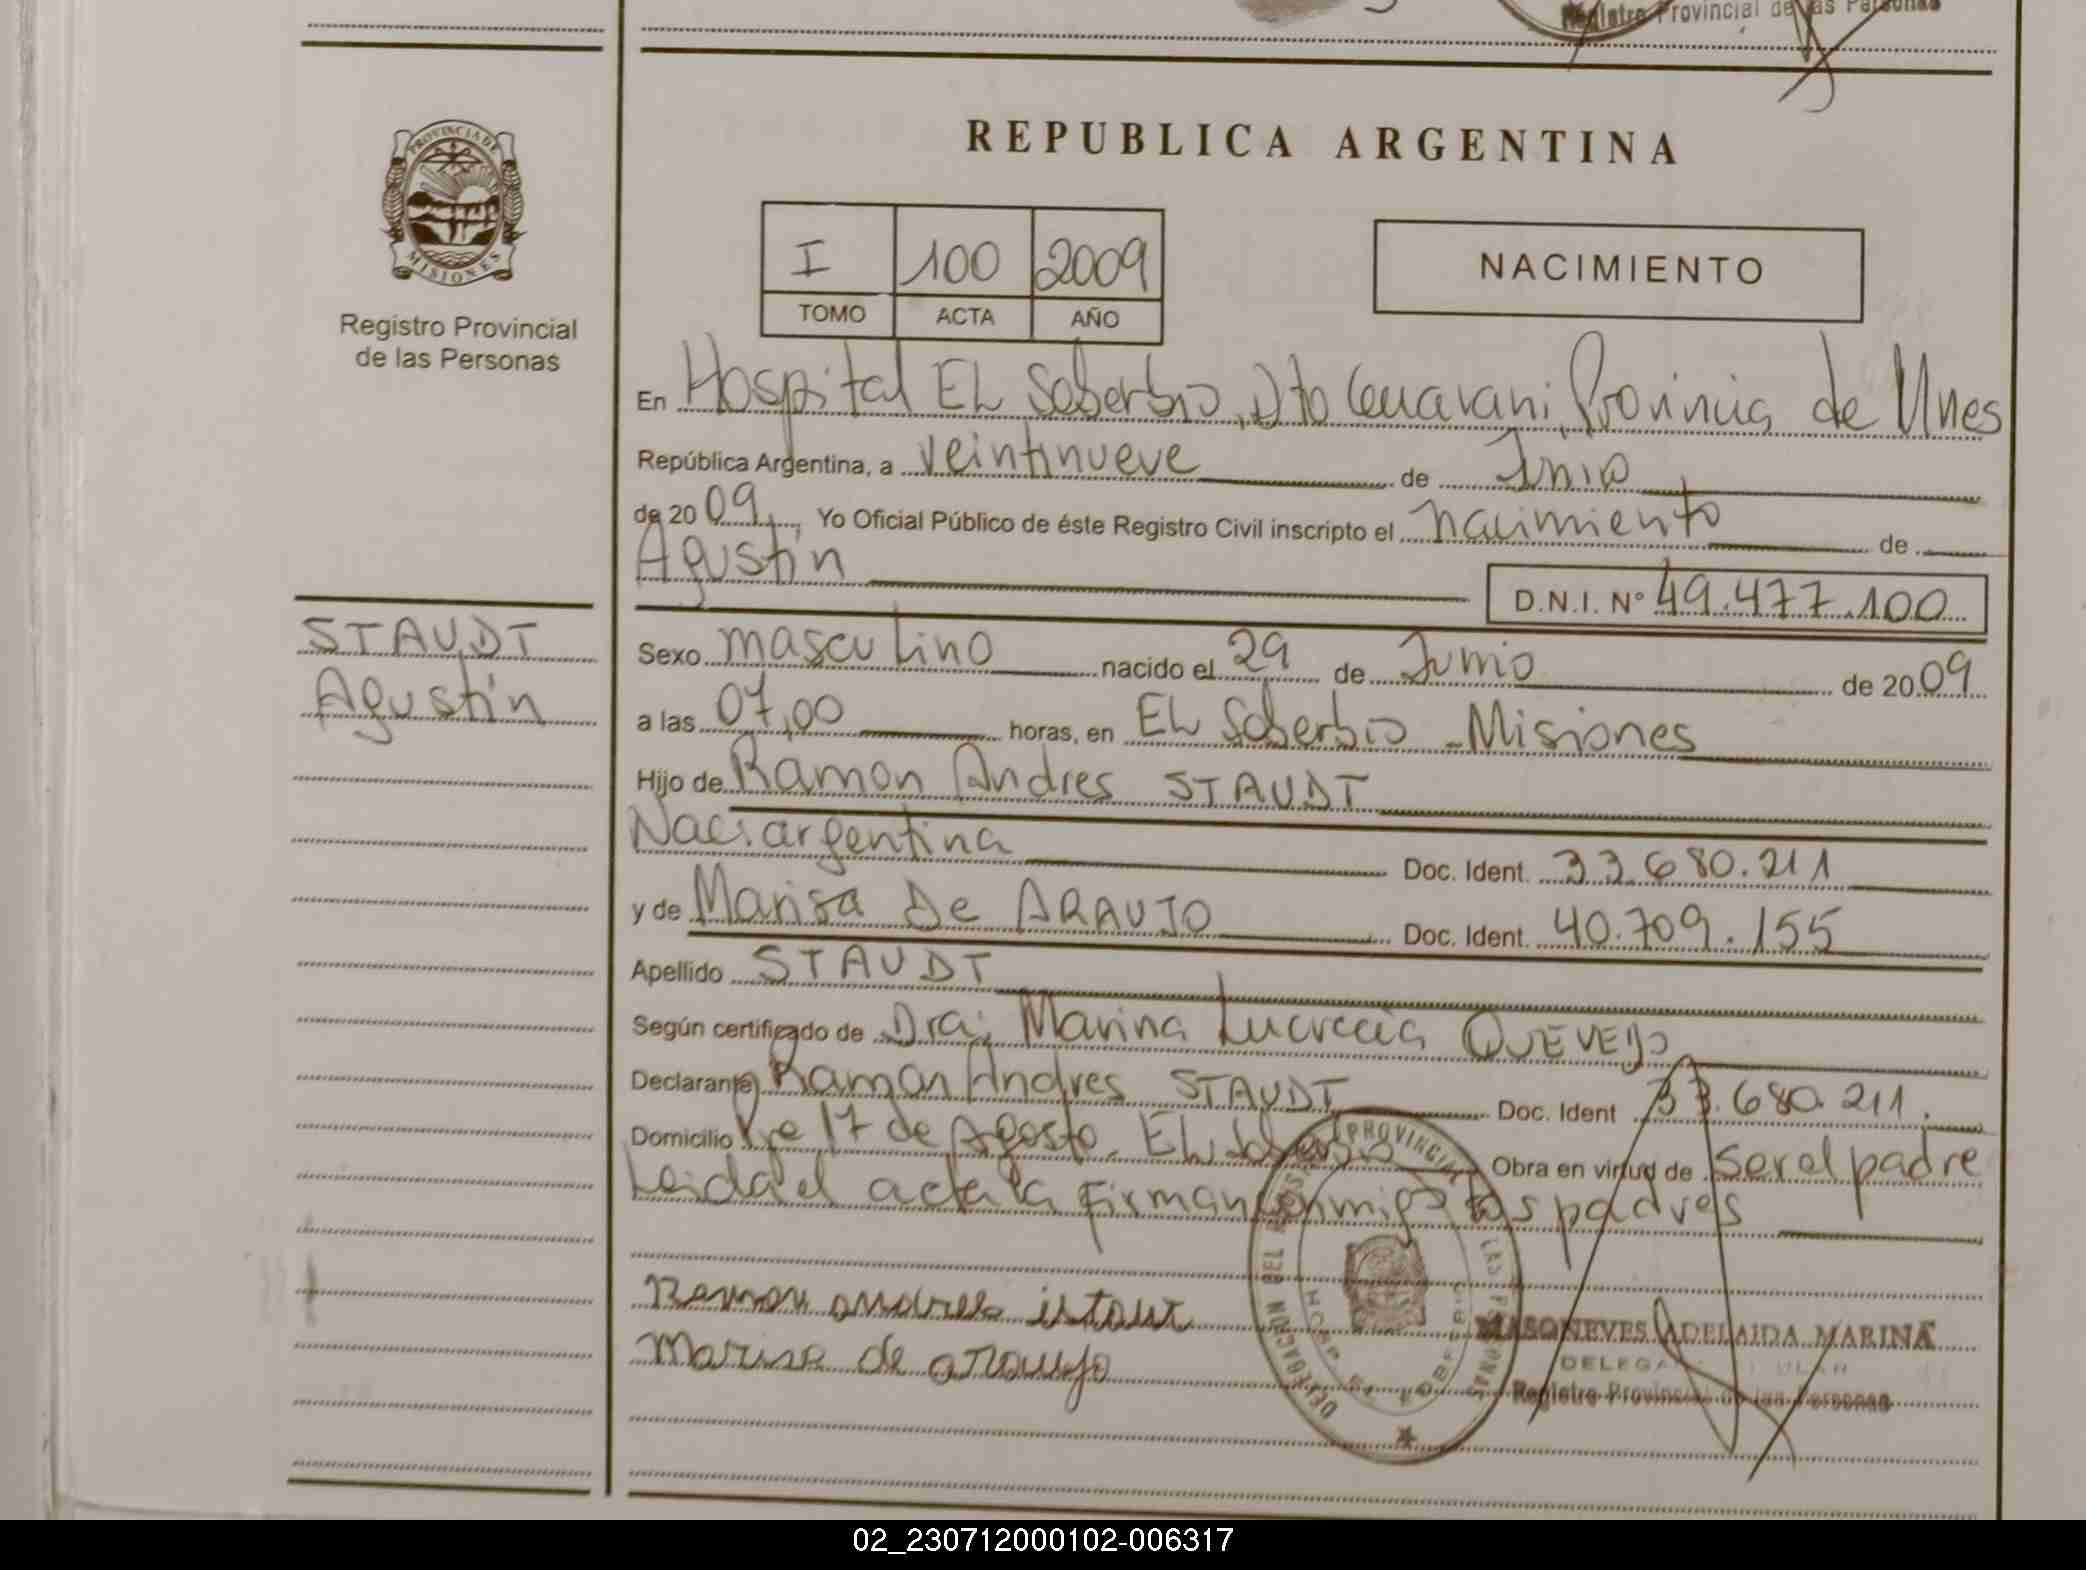 Registro Provincial de las Personas
REPUBLICA ARGENTINA
PROVINCIA DE
MISIONES
Registro Provincial
de las Personas
I 100 2009
TOMO ACTA AÑO
NACIMIENTO
En Hospital EL Soberbio, Dto Guarani, Provincia de Mnes
República Argentina, a veintinueve de Junio
de 20 09, Yo Oficial Público de éste Registro Civil inscripto el nacimiento de
Agustín
D.N.I. Nº 49.477.100
STAUDT
Agustín
Sexo masculino nacido el 29 de Junio de 20 09
a las 07,00 horas, en EL Soberbio - Misiones
Hijo de Ramon Andres STAUDT
Naci. argentina Doc. Ident. 33.680.211
y de Marisa De ARAUJO Doc. Ident. 40.709.155
Apellido STAUDT
Según certificado de Dra; Marina Lucrecia QUEVEDO
Declarante Ramon Andres STAUDT Doc. Ident 33.680.211.
Domicilio 17 de Agosto. EL Soberbio Obra en virtud de ser el padre
Leida el acta la firman conmigo los padres
Ramon andres
Marisa de araujo
PROVINCIAL DE LAS PERSONAS
DELEGACION DEL REGISTRO
MASONEVES ADELAIDA MARINA
Registro Provincial de las Personas
02_230712000102-006317